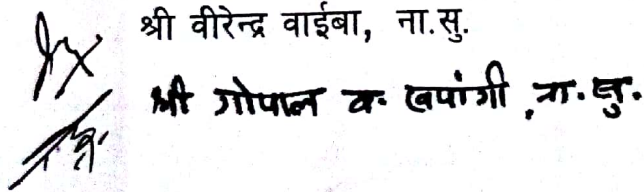 श्री वीरेन्द्र वाईबा, ना.सु.
श्री गोपाल ब. खपांगी, ना.सु.